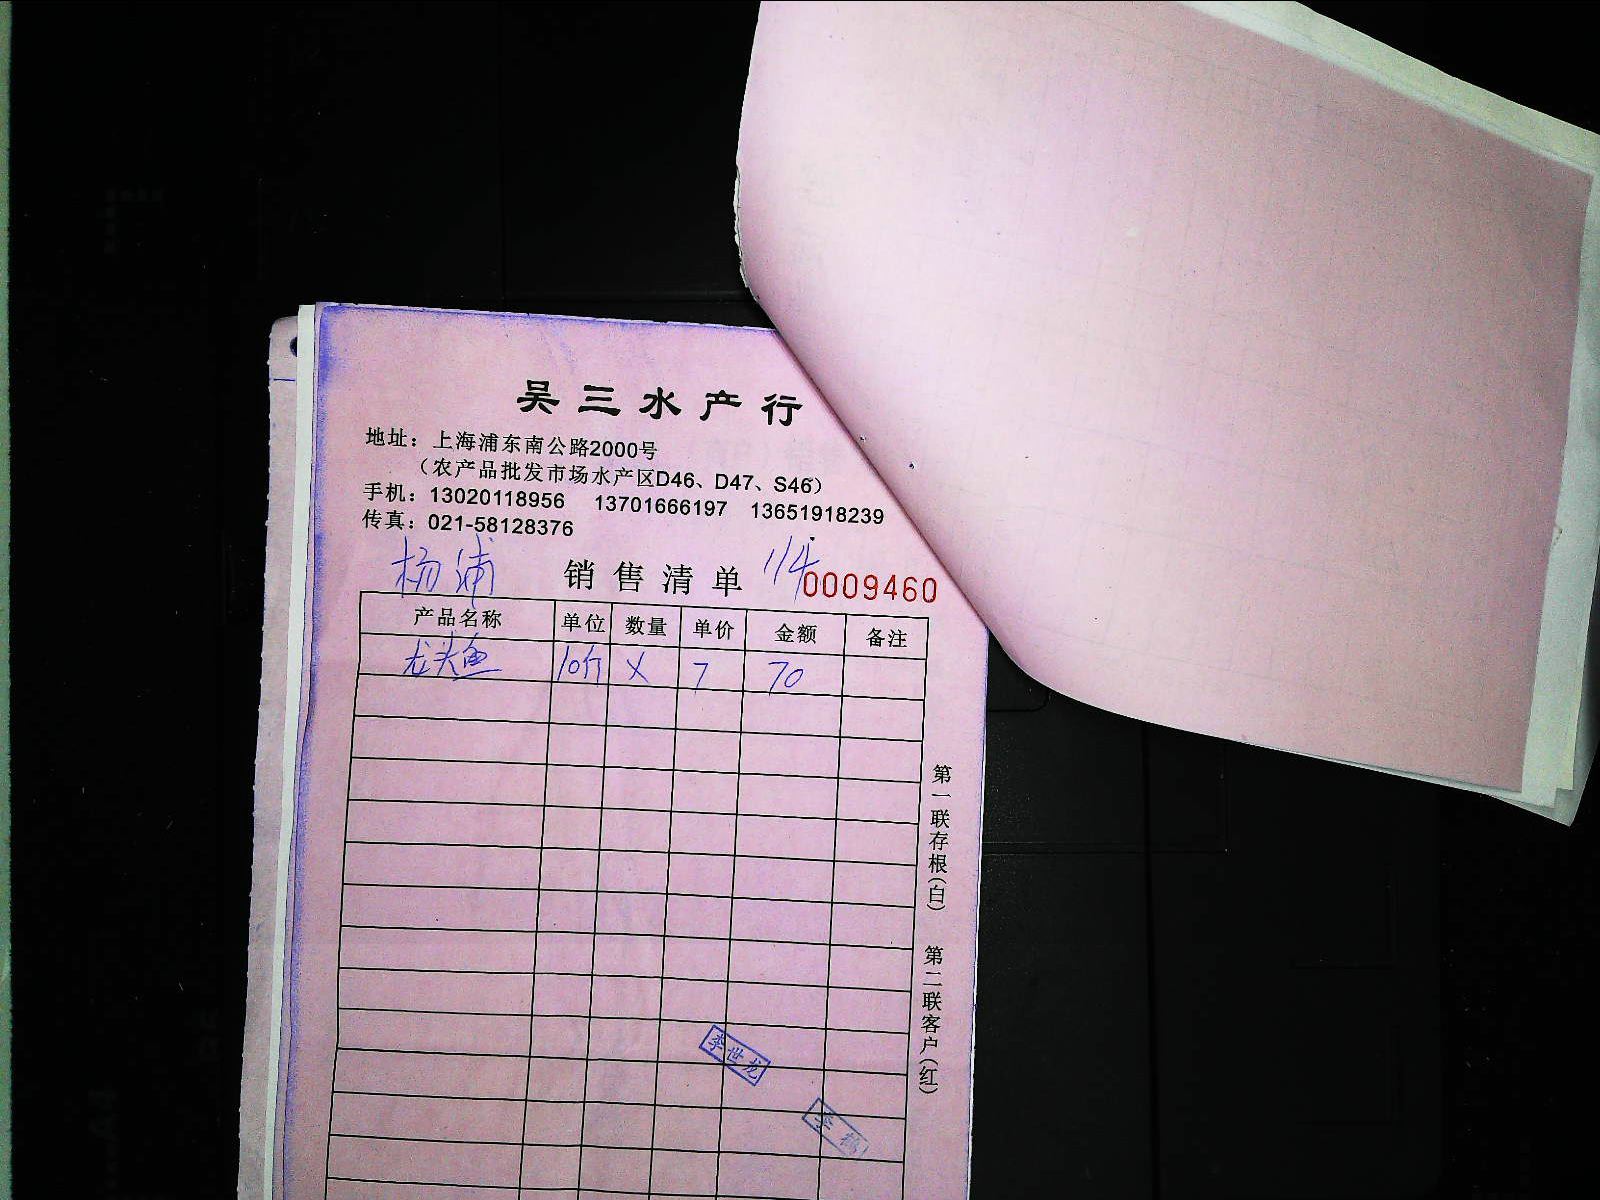 吴三水产行
地址：上海浦东南公路2000号
（农产品批发市场水产区D46、D47、S46）
手机：13020118956 13701666197 13651918239
传真：021-58128376
杨浦 销售清单 11/4 0009460
产品名称 单位 数量 单价 金额 备注
龙头鱼 10斤 X 7 70
第一联存根（白） 第二联客户（红）
李世龙
李